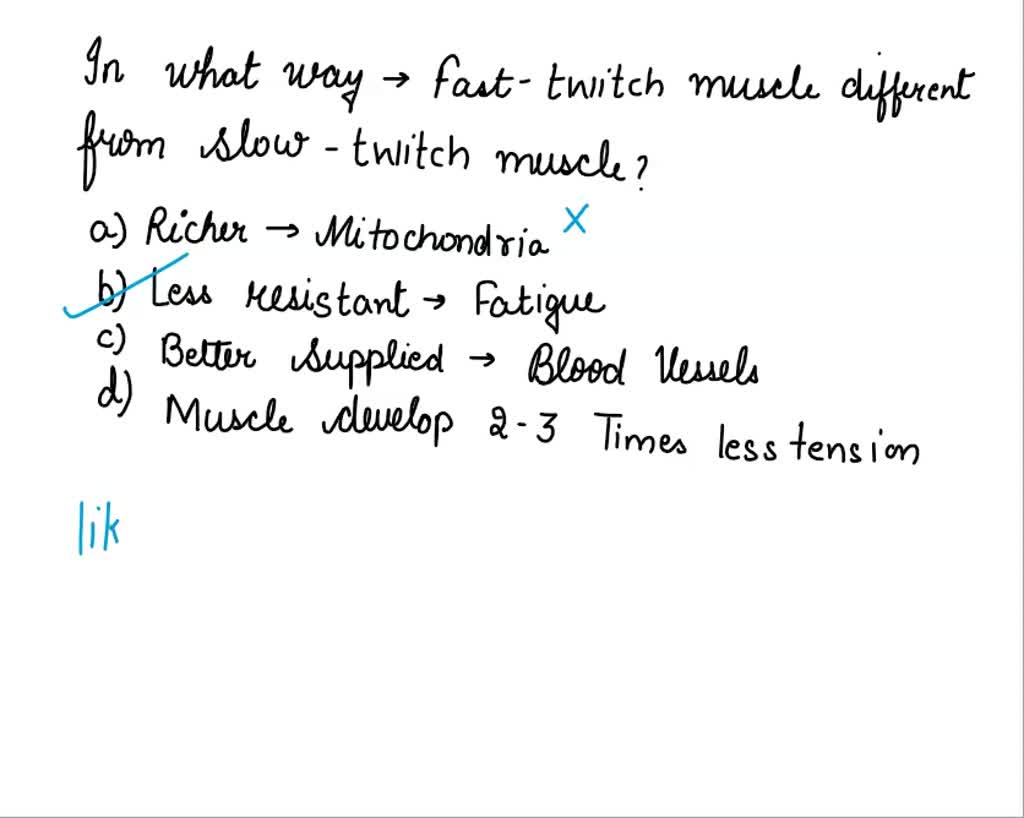 In what way → fast-twitch muscle different
from slow-twitch muscle?
a) Richer → Mitochondria X
b) Less resistant → Fatigue
c) Better supplied → Blood Vessels
d) Muscle develop 2-3 Times less tension
lik